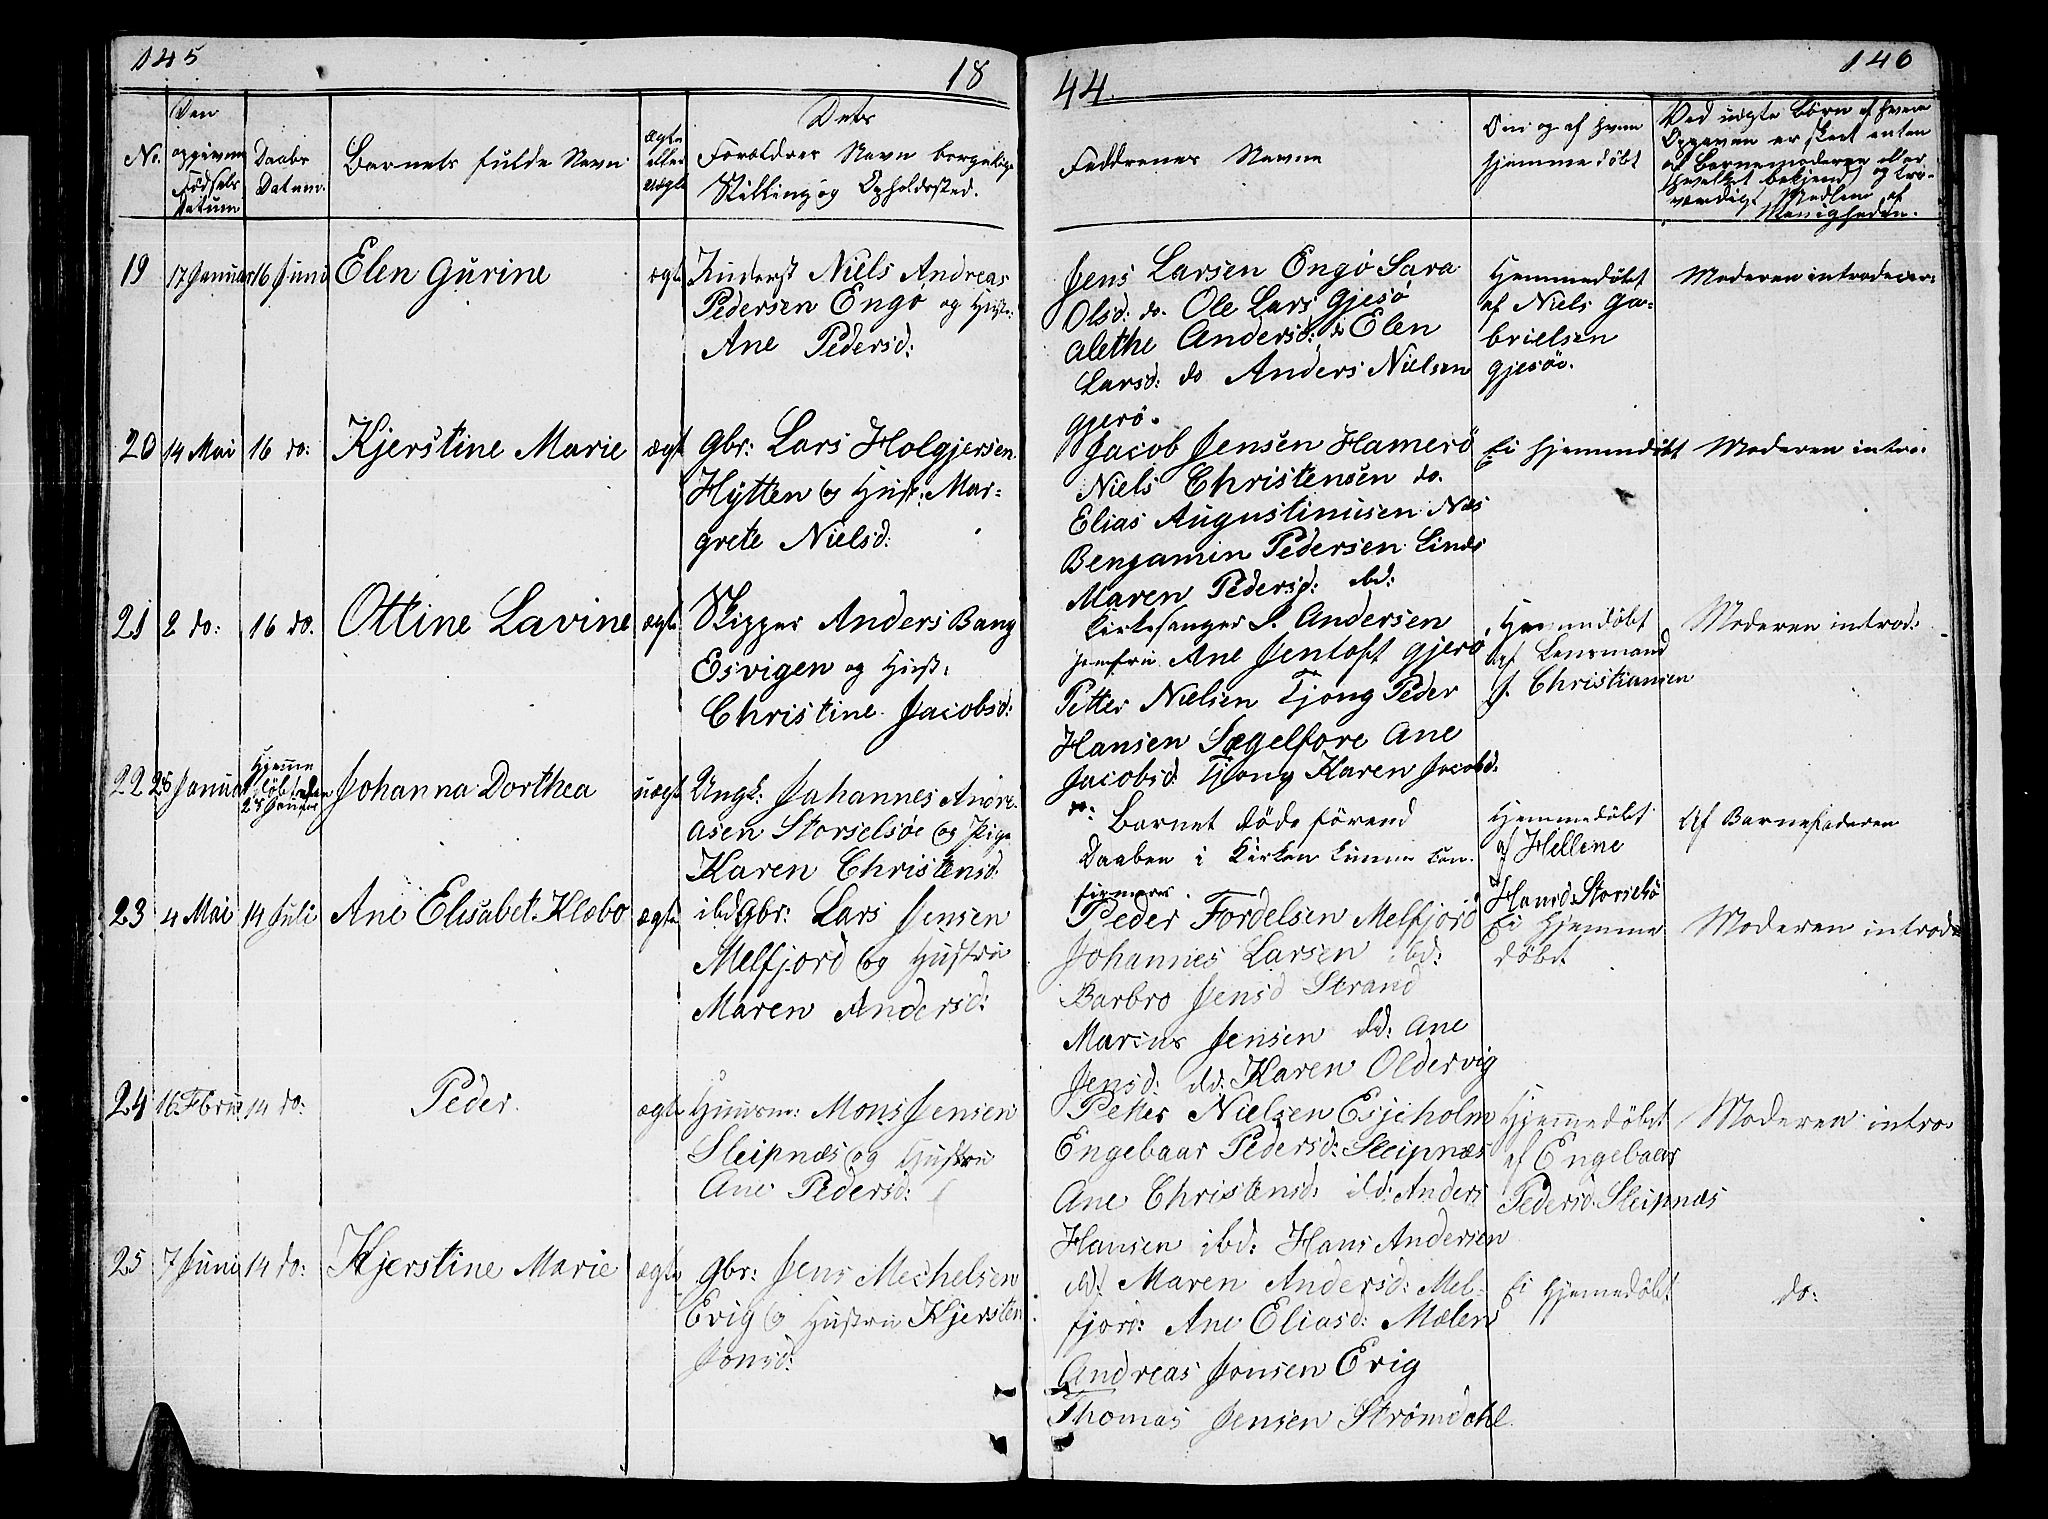 145
18
44.
146
No.
Den
opgivne
Fødsels
Datum
Daabs
Datum
Barnets fulde Navn
ægte
eller
uægte
Dets
Forældres Navn borgelige
Stilling og Opholdssted.
Faddrenes Navne
Om og af hvem
hjemmedøbt
Ved uægte Børn af hvem
Opgaven er skeet enten
af Barnemoderen eller
hvilket bekjendt og tro-
værdigt Medlem af
Menigheden.
19
17 Januar
16 Juni
Elen Gurine
ægte
Inderst Niels Andreas
Pedersen Engø og Hust:
Ane Pedersd:
Jens Larsen Engø Sara
Olsd: do. Ole Lars Gjesø
Alethe Andersd: do Elen
Larsd: do Anders Nielsen
Gjerø.
Hjemmedøbt
af Niels Ga-
brielsen
Gjesøe.
Moderen introducer:
20
14 Mai
16 do:
Kjerstine Marie
ægt
Gbr: Lars Holgjersen
Hytten og Hust: Mar-
grete Nielsd:
Jacob Jensen Hamerø
Niels Christensen do.
Elias Augustinusen Næs
Benjamin Pedersen Linds
Maren Pedersd: ibd:
Ei hjemmdøbt
Moderen intro:
21
2 do:
16 do.
Ottine Lavine
ægte
Skipper Anders Bang
Esvigen og Hust:
Christine Jacobsd:
Kirkesanger S. Andersen
Jomfru Ane Jentoft Gjerø
Petter Nielsen Tjong Peder
Hansen Sægelfore Ane
Jacobsd: Tjong Karen Jacobsd:
do:
Hjemmedøbt
af Lensmand
J. Christiansen
Moderen introd:
22
25 Januar
Hjemme
døbt den
25 Januar
Johanna Dorthea
uægt
Ungk: Johannes Andre-
asen Storselsøe og Pige
Karen Christensd:
ibd
Barnet døde førend
Daaben i Kirken kunne con-
firmeres.
Hjemmedøbt
af Hellene
Hansd: Storselsø
Af Barnefaderen
23
4 Mai
14 Juli
Ane Elisabet Klæbo
ægte
Gbr: Lars Jensen
Melfjord og Hustru
Maren Andersd:
Peder Fordelsen Melfjord
Johannes Larsen ibd:
Barbro Jensd Strand
Marius Jensen ibd: Ane
Jensd: ibd: Karen Oldervig
Ei Hjemme
døbt
Moderen introd:
24
16 Febru
14 do:
Peder
ægte
Huusm: Mons Jensen
Sleipnæs og Hustru
Ane Pedersd:
Petter Nielsen Esjeholm
Engebaar Pedersd: Sleipnæs
Ane Christensd: ibd: Anders
Hansen ibd: Hans Andersen
ibd:
Hjemmedøbt
af Engebaar
Pedersd. Sleipnæs
Moderen intro.
25
7 Juni
14 do:
Kjerstine Marie
ægte
Gbr: Jens Mechelsen
Evig og Hustru Kjersten
Jonsd:
Maren Andersd: Mel-
fjord: Ane Eliasd: Mælen
Andreas Jonsen Evig
Thomas Jensen Strømdahl
Ei Hjemedøbt
do: